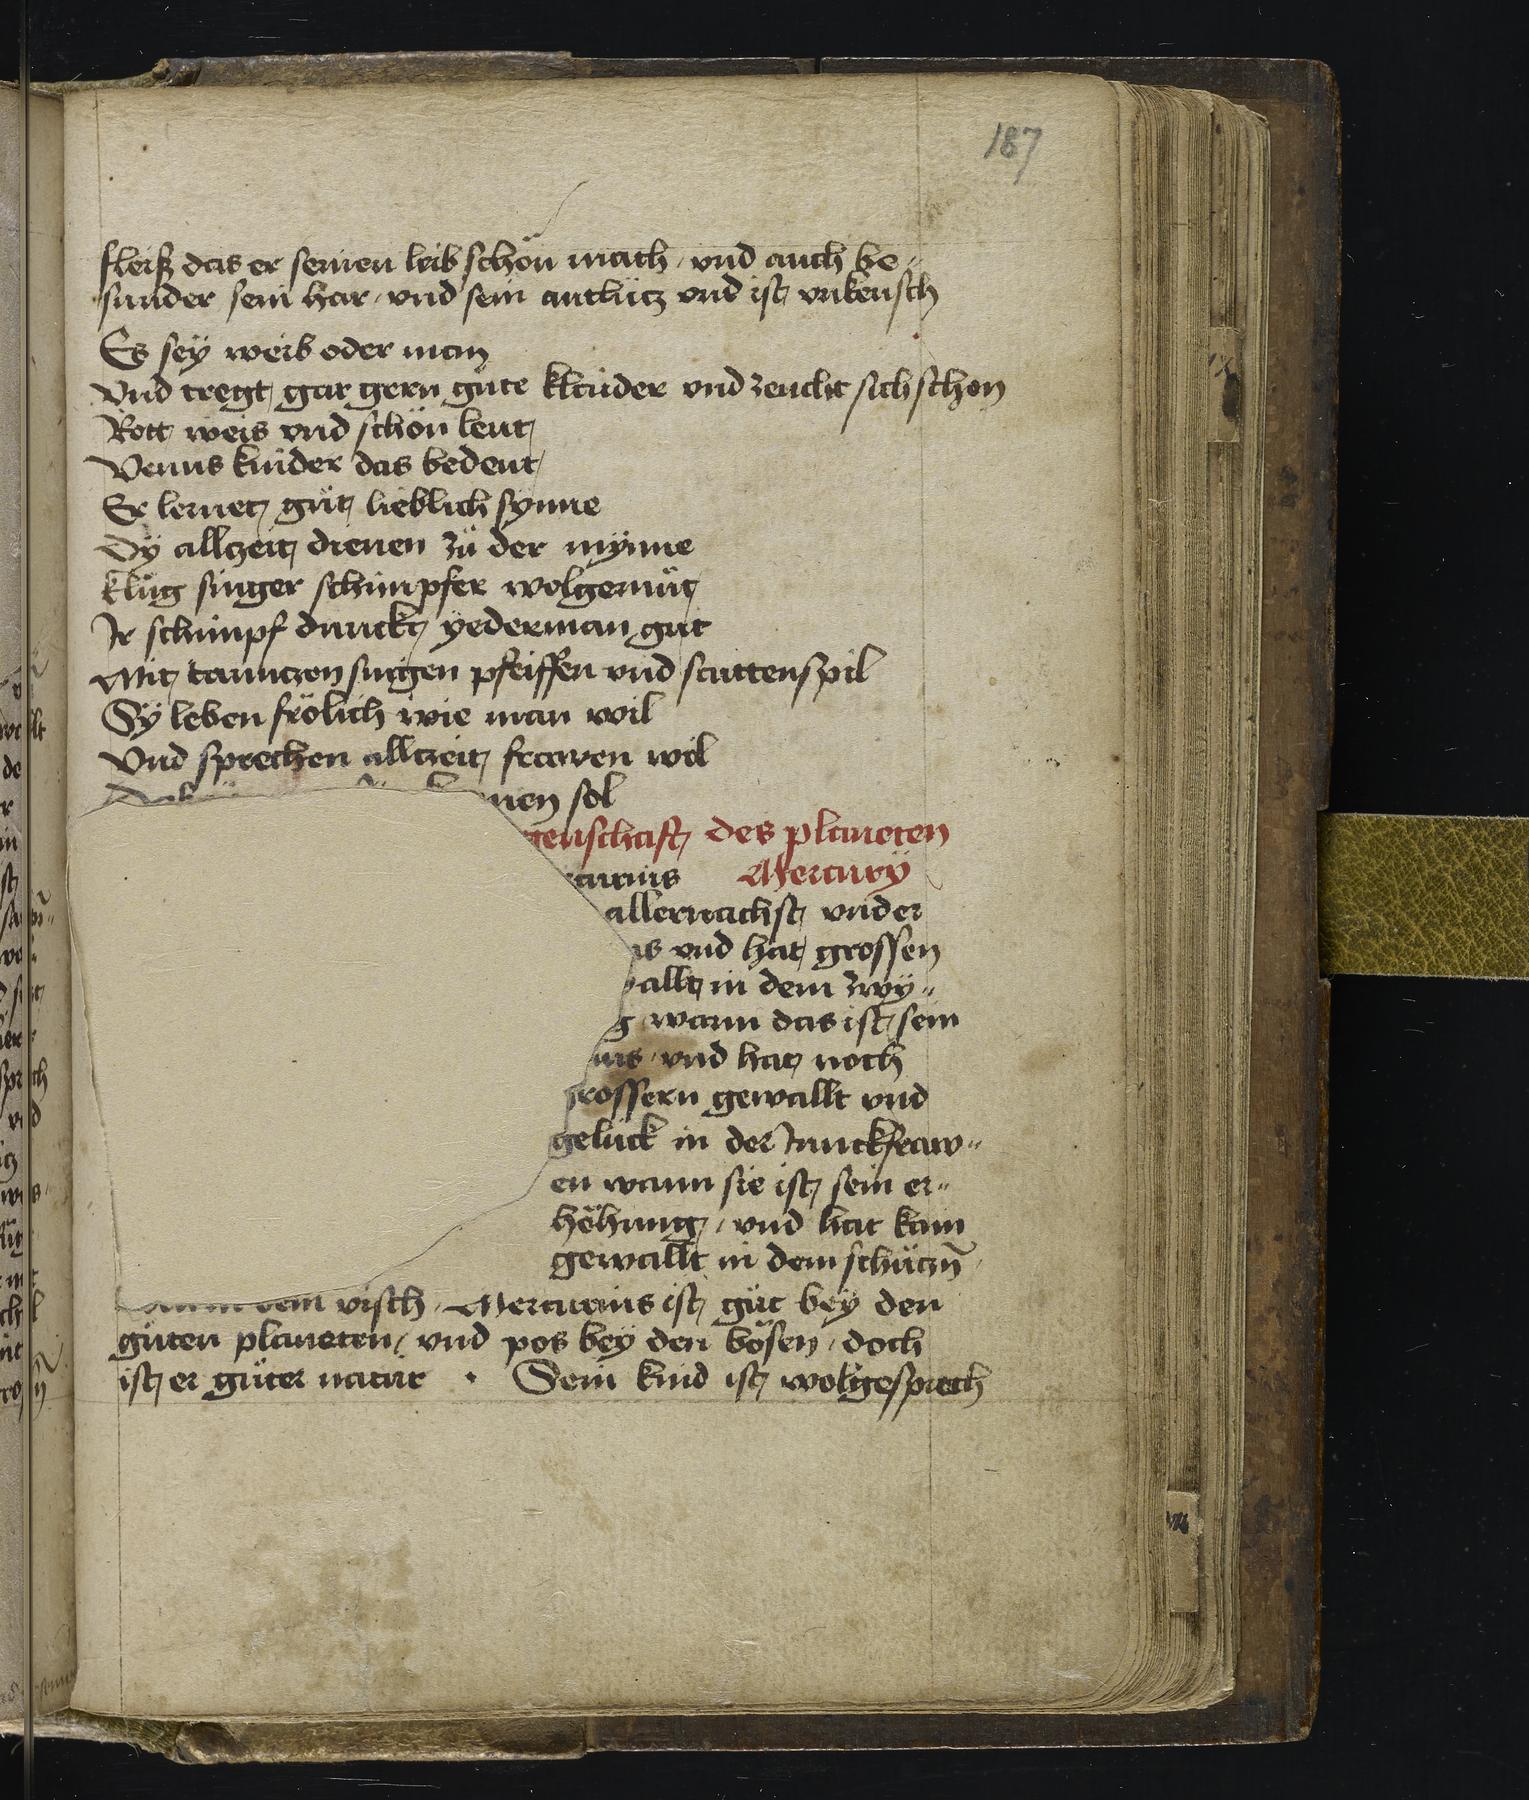 187
fleiß das er seinen leib schön mach / vnd auch be„
sunder sein har / vnd sein antlücz vnd ist vnkeusch
Es sey weib oder man
Vnd tregt gar gern gute klaider vnd zeucht sich schon
Rott weis vnd schön leut
Venus kinder das bedeut
Er lernet gůt lieblich synne
Dy allczeit dienen zů der mynne
klůg singer schimpfer wolgemůt
Ir schimpf dunckt yederman gut
Mit tannczen singen pfeiffen vnd saittenspil
Sy leben frölich wie man wil
Vnd sprechen allczeit frawen wol
nen sol
genschaft des planeten
curius Mercury
allernachst vnder
us vnd hat grossen
wallt in dem zwy„
g wann das ist sein
us / vnd hat noch
grossern gewallt vnd
gelück in der Junckfraw„
en wann sie ist sein er„
höhung / vnd hat kain
gewallt in dem schüczn̄
dem visch / Mercurius ist gůt bey den
gůten planeten / vnd pos bey den bösen / doch
ist er gůter natur · Sein kind ist wolgesprech